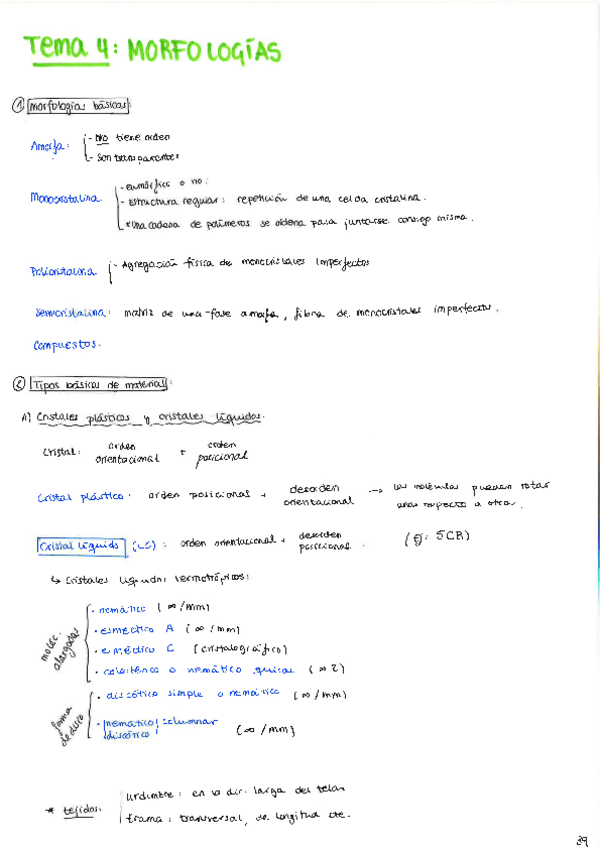 Tema 4: MORFOLOGÍAS
① Morfologías básicas:
Amorfa: - NO tiene orden
- Son transparentes
Monocristalina. - euhórfica o no.
- Estructura regular: repetición de una celda cristalina.
* Una cadena de polímeros se ordena para juntarse consigo misma.
Policristalina - Agregación física de monocristales imperfectos
Semicristalina: matriz de una fase amorfa, fibra de monocristales imperfectos.
Compuestos.
② Tipos básicos de material:
A) Cristales plásticos y cristales líquidos.
Cristal: orden orientacional + orden posicional
Cristal plástico: orden posicional + desorden orientacional → las moléculas pueden rotar
unas respecto a otras.
Cristal líquido (LC): orden orientacional + desorden posicional. (Ej: 5CB)
↳ Cristales líquidos termotrópicos:
moléc. alargadas
· nemático (∞/mm)
· esméctico A (∞/mm)
· esméctico C (cristalográfico)
· colestérico o nemático quiral (∞2)
forma de disco
· discótico simple o nemático (∞/mm)
· nemático columnar discótico (∞/mm)
* tejidos: urdimbre: en la dir. larga del telar
trama: transversal, de longitud cte.
39